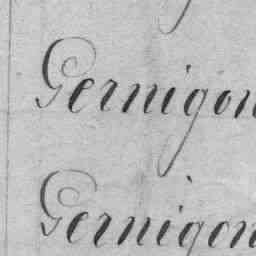 Gernigon
Gernigon